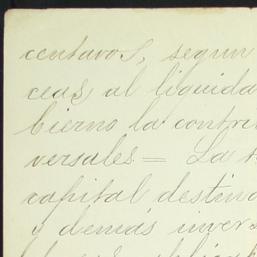 centavos, segun
ceas al liquida
bierno la contri
versales = La
capital destin
y demás inver